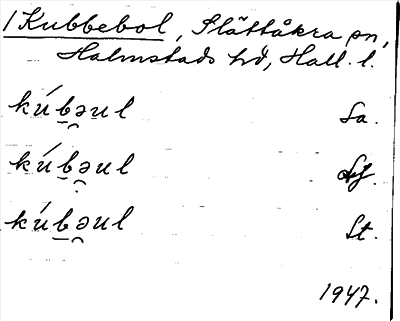 /Kubbebol, Slättåkra sn,
Halmstads hd, Hall. l.
kúb̠əul Sa.
kúb̠əul
kúb̠əul St.
1947.